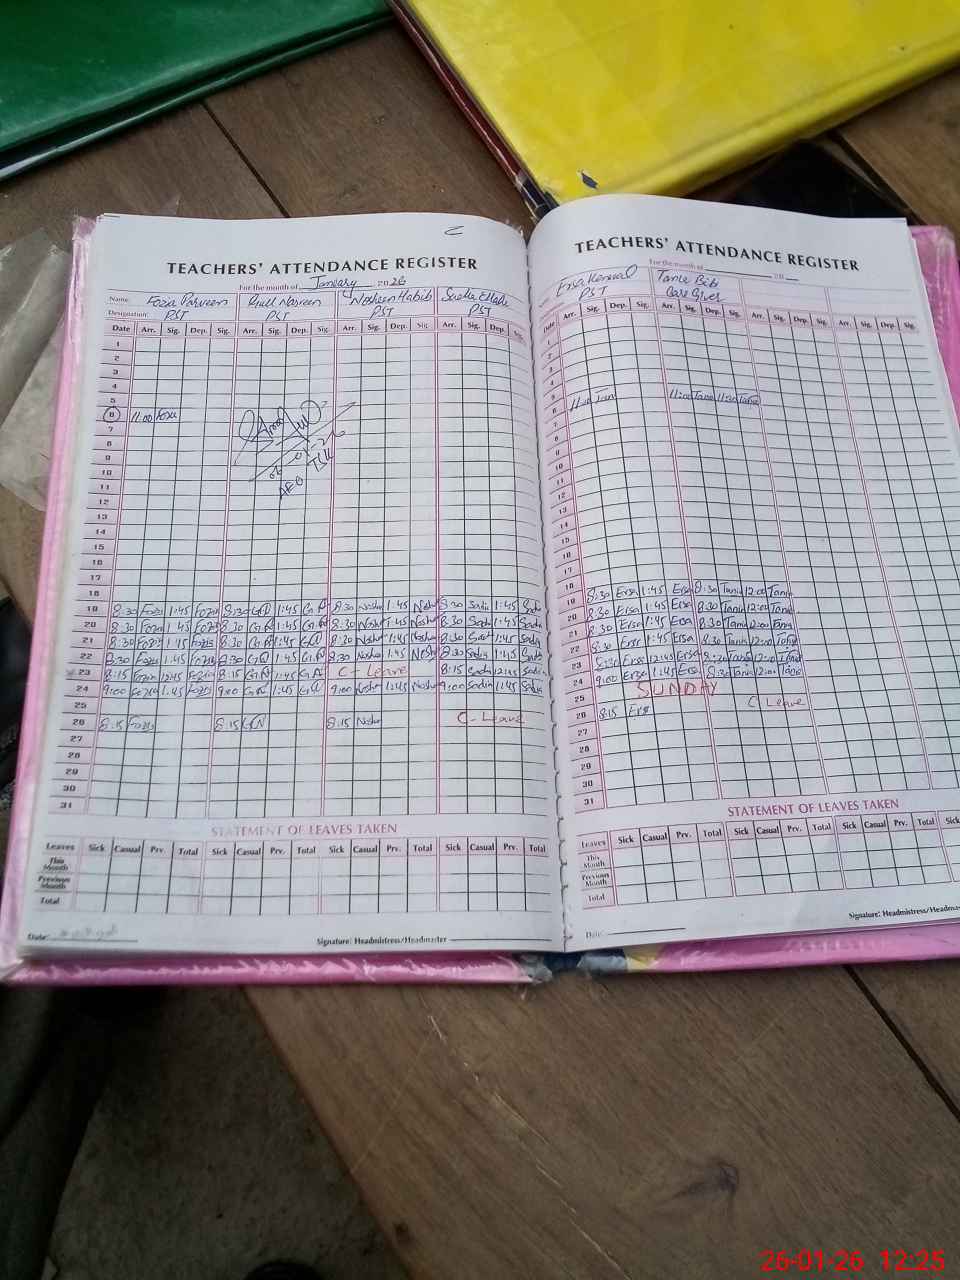 TEACHERS' ATTENDANCE REGISTER
For the month of January 2026
Name: Fozia Parveen Gull Nasreen Nosheen Habib Sadia
Designation: PST PST PST PST
Date Arr. Sig. Dep. Sig. Arr. Sig. Dep. Sig. Arr. Sig. Dep. Sig. Arr. Sig. Dep. Sig.
1
2
3
4
5
6 11:00 Fozia
7
8
9
10
11
AEO
12
13
14
15
16
17
18
19 8:30 Fozia 1:45 Fozia 8:30 G.N 1:45 G.N 8:30 Noshe 1:45 Noshe 8:30 Sadia 1:45 Sadia
20 8:30 Fozia 1:45 Fozia 8:30 G.N 1:45 G.N 8:30 Noshe 1:45 Noshe 8:30 Sadia 1:45 Sadia
21 8:30 Fozia 1:45 Fozia 8:30 G.N 1:45 G.N 8:30 Noshe 1:45 Noshe 8:30 Sadia 1:45 Sadia
22 8:30 Fozia 1:45 Fozia 8:30 G.N 1:45 G.N 8:30 Noshe 1:45 Noshe 8:30 Sadia 1:45 Sadia
23 8:15 Fozia 12:45 Fozia 8:15 G.N 1:45 G.N C - Leave 8:15 Sadia 12:45 Sadia
24 9:00 Fozia 1:45 Fozia 9:00 G.N 1:45 G.N 9:00 Noshe 1:45 Noshe 9:00 Sadia 1:45 Sadia
25
26 8:15 Fozia 8:15 G.N 8:15 Noshe C - Leave
27
28
29
30
31
STATEMENT OF LEAVES TAKEN
Leaves Sick Casual Prv. Total Sick Casual Prv. Total Sick Casual Prv. Total Sick Casual Prv. Total
This Month
Previous Month
Total
Date: Signature: Headmistress/Headmaster
TEACHERS' ATTENDANCE REGISTER
For the month of 20
Ersa Kenwal Tania Bibi
PST Care Giver
Date Arr. Sig. Dep. Sig. Arr. Sig. Dep. Sig. Arr. Sig. Dep. Sig. Arr. Sig. Dep. Sig.
1
2
3
4
5
6 11:00 11:00 Tania 11:30 Tania
7
8
9
10
11
12
13
14
15
16
17
18
19 8:30 Ersa 1:45 Ersa 8:30 Tania 12:00 Tania
20 8:30 Ersa 1:45 Ersa 8:30 Tania 12:00 Tania
21 8:30 Ersa 1:45 Ersa 8:30 Tania 12:00 Tania
22 8:30 Ersa 1:45 Ersa 8:30 Tania 12:00 Tania
23 8:30 Ersa 12:45 Ersa 8:30 Tania 12:00 Tania
24 9:00 Ersa 1:45 Ersa 8:30 Tania 12:00 Tania
25 SUNDAY
26 8:15 Ersa C Leave
27
28
29
30
31
STATEMENT OF LEAVES TAKEN
Leaves Sick Casual Prv. Total Sick Casual Prv. Total Sick Casual Prv. Total Sick
This Month
Previous Month
Total
Date: Signature: Headmistress/Headmas
26-01-26 12:25